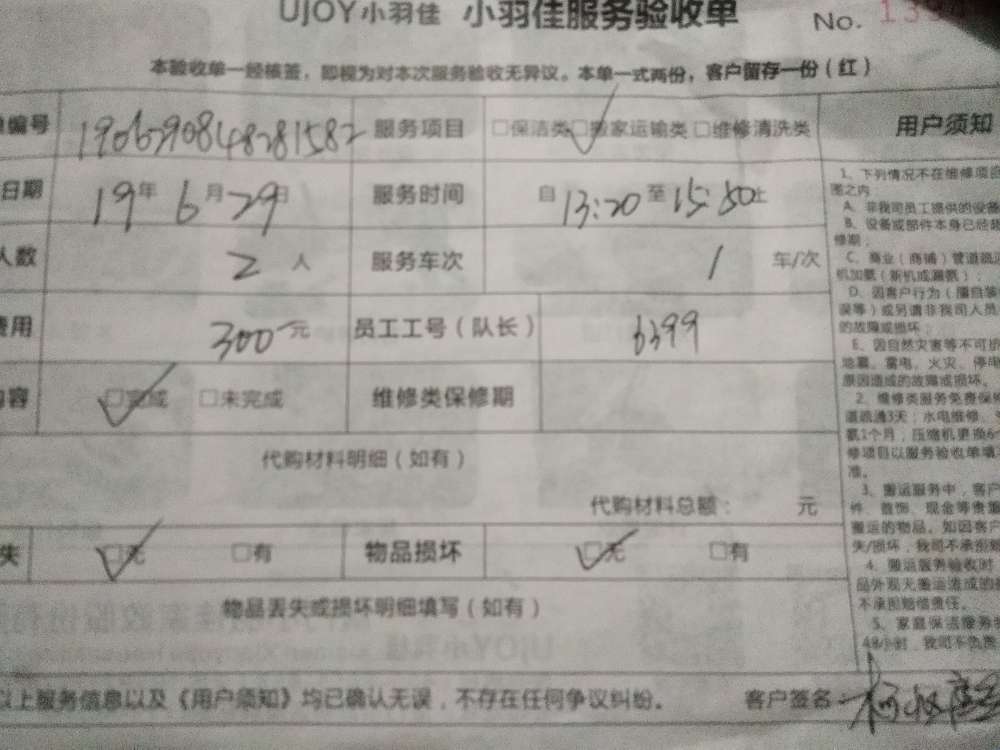 UJOY小羽佳 小羽佳服务验收单 No.
本验收单一经核签，即视为对本次服务验收无异议。本单一式两份，客户留存一份（红）
编号 1906290848281582 服务项目 □保洁类 □搬家运输类 □维修清洗类
日期 19年6月29日 服务时间 自13:20至15:50止
人数 2人 服务车次 1 车/次
费用 300元 员工工号（队长） 6399
内容 □完成 □未完成 维修类保修期
代购材料明细（如有）
代购材料总额： 元
失 □无 □有 物品损坏 □无 □有
物品丢失或损坏明细填写（如有）
以上服务信息以及《用户须知》均已确认无误，不存在任何争议纠纷。 客户签名
用户须知
1、下列情况不在维修项目
围之内
A、非我司员工提供的设备
B、设备或部件本身已经超
修期；
C、商业（商铺）管道疏
机加氨（新机或漏氨）；
D、因客户行为（擅自装
误等）或另请非我司人员
的故障或损坏；
E、因自然灾害等不可抗
地震、雷电、火灾、停电
原因造成的故障或损坏。
2、维修类服务免费保修
道疏通3天；水电维修、
氨1个月；压缩机更换6
修项目以服务验收单填
准。
3、搬运服务中，客户
件、首饰、现金等贵重
搬运的物品，如因客户
失/损坏，我司不承担
4、搬运服务验收时
品外观无搬运造成的
不承担赔偿责任。
5、家庭保洁服务
48小时，我司不负责